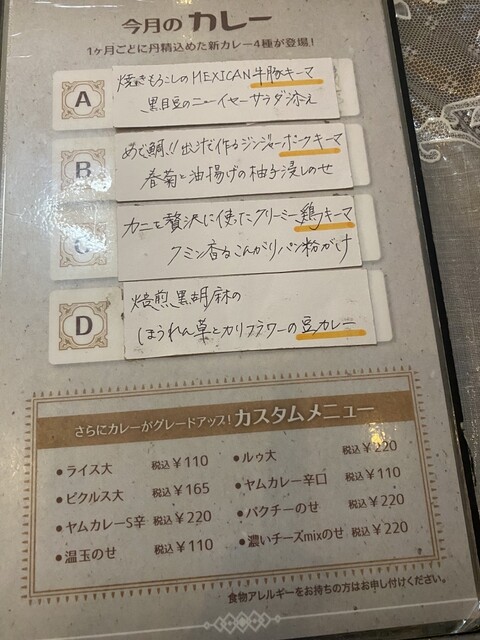 今月のカレー
1ヶ月ごとに丹精込めた新カレー4種が登場!
A
焼きもろこしのMEXICAN牛豚キーマ
黒目豆のニューイヤーサラダ添え
B
めで鯛!!出汁で作るジンジャーポークキーマ
春菊と油揚げの柚子浸しのせ
C
カニを贅沢に使ったクリーミー鶏キーマ
クミン香るこんがりパン粉がけ
D
焙煎黒胡麻の
ほうれん草とカリフラワーの豆カレー
さらにカレーがグレードアップ!カスタムメニュー
●ライス大 税込¥110
●ピクルス大 税込¥165
●ヤムカレーS辛 税込¥220
●温玉のせ 税込¥110
●ルゥ大 税込¥220
●ヤムカレー辛口 税込¥110
●パクチーのせ 税込¥220
●濃いチーズmixのせ 税込¥220
食物アレルギーをお持ちの方はお申し付けください。